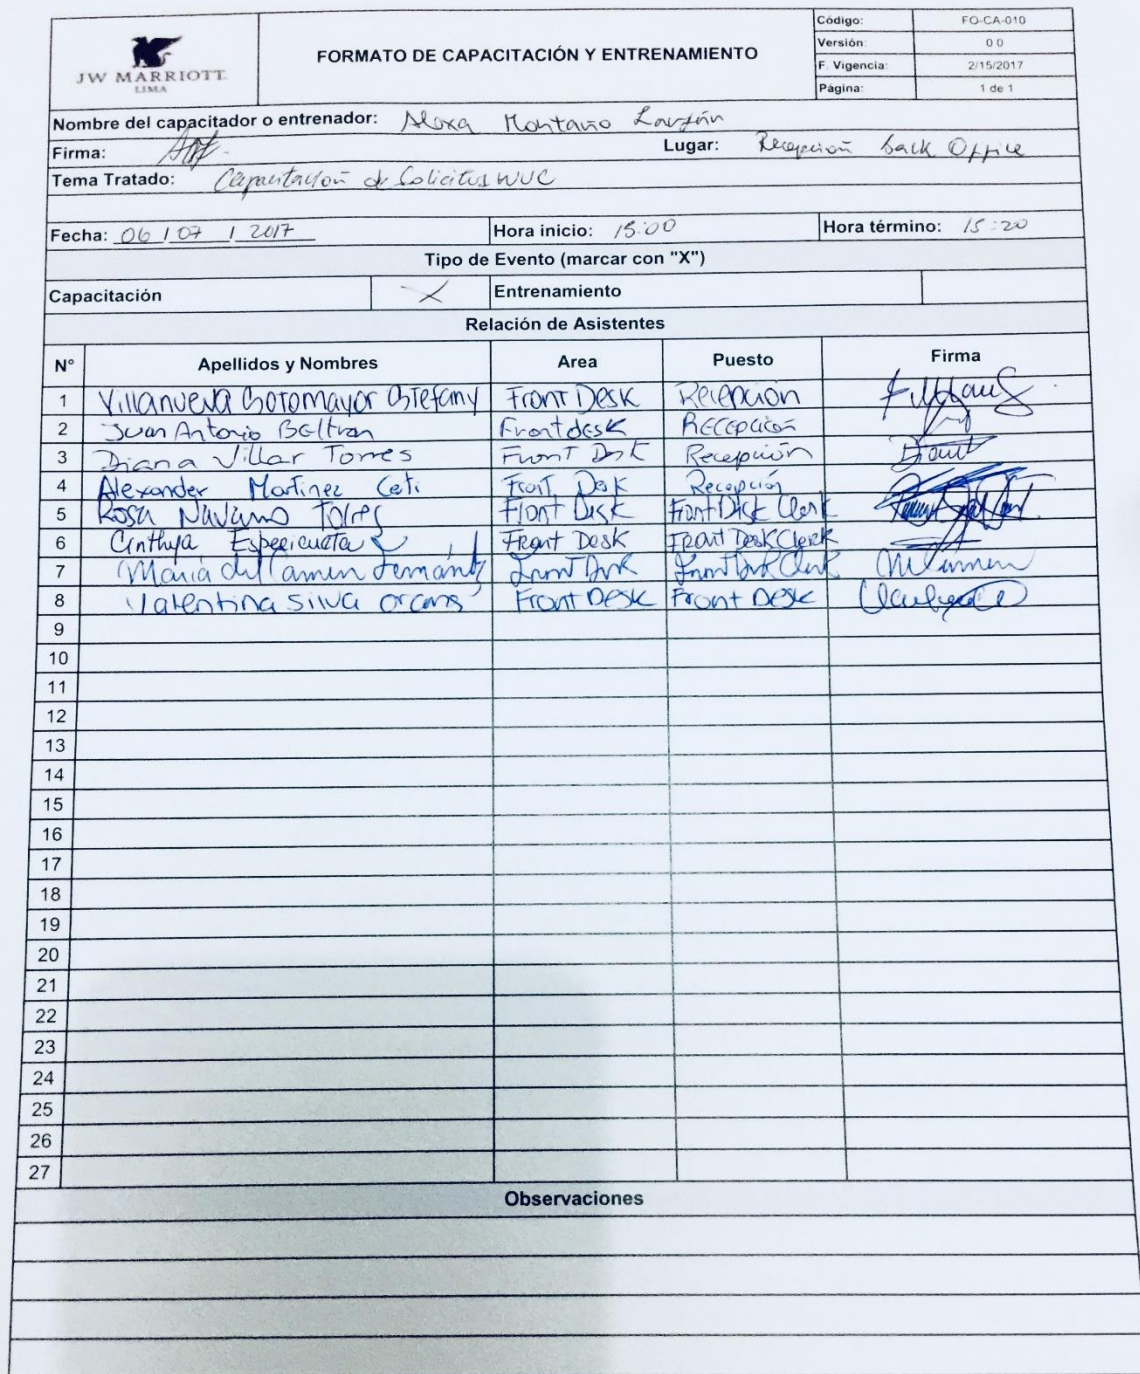 JW MARRIOTT
LIMA
FORMATO DE CAPACITACIÓN Y ENTRENAMIENTO
Código: FO-CA-010
Versión: 0 0
F. Vigencia: 2/15/2017
Página: 1 de 1
Nombre del capacitador o entrenador: Alexa Montaño
Firma:
Lugar: Recepción back Office
Tema Tratado: Capacitación de Solicitus WUC
Fecha: 06 / 07 / 2017 Hora inicio: 15:00 Hora término: 15:20
Tipo de Evento (marcar con "X")
Capacitación X Entrenamiento
Relación de Asistentes
N° Apellidos y Nombres Area Puesto Firma
1 Villanueva Sotomayor Stefany Front Desk Recepción
2 Juan Antonio Beltran Front desk Recepción
3 Diana Villar Torres Front Desk Recepción
4 Alexander Martinez Front Desk Recepción
5 Rosa Navarro Torres Front Desk Front Desk Clerk
6 Cinthya Espericueta Front Desk Front Desk Clerk
7 Maria del Carmen Front Desk Front Desk Clerk
8 Valentina Silva Front Desk Front Desk
9
10
11
12
13
14
15
16
17
18
19
20
21
22
23
24
25
26
27
Observaciones